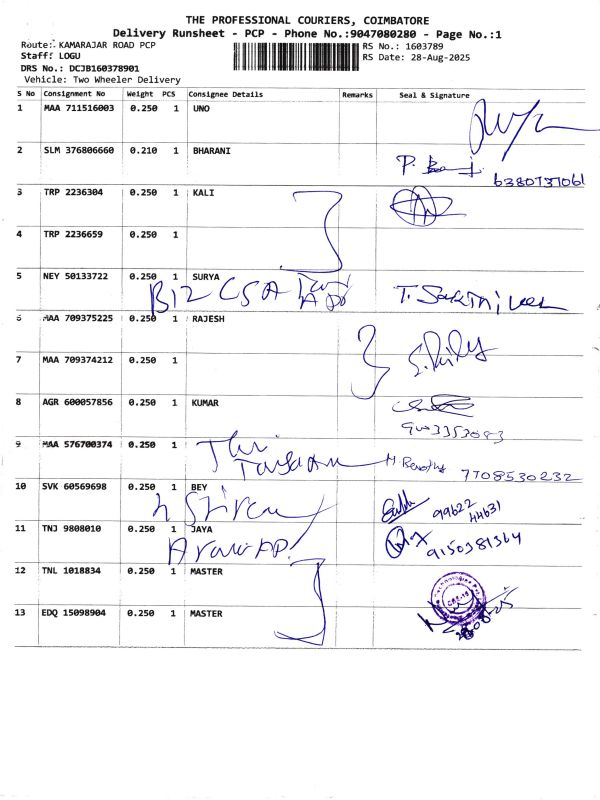 THE PROFESSIONAL COURIERS, COIMBATORE
Delivery Runsheet - PCP - Phone No.:9047080280 - Page No.:1
Route: KAMARAJAR ROAD PCP
RS No.: 1603789
Staff: LOGU
RS Date: 28-Aug-2025
DRS No.: DCJB160378901
Vehicle: Two Wheeler Delivery
S No Consignment No Weight PCS Consignee Details Remarks Seal & Signature
1 MAA 711516003 0.250 1 UNO
2 SLM 376806660 0.210 1 BHARANI
6380737061
3 TRP 2236304 0.250 1 KALI
4 TRP 2236659 0.250 1
5 NEY 50133722 0.250 1 SURYA
B12 CSA
6 MAA 709375225 0.250 1 RAJESH
7 MAA 709374212 0.250 1
8 AGR 600057856 0.250 1 KUMAR
9003353083
9 MAA 576700374 0.250 1
7708530232
10 SVK 60569698 0.250 1 BEY
99622
44631
11 TNJ 9808010 0.250 1 JAYA
9150381364
12 TNL 1018834 0.250 1 MASTER
13 EDQ 15098904 0.250 1 MASTER